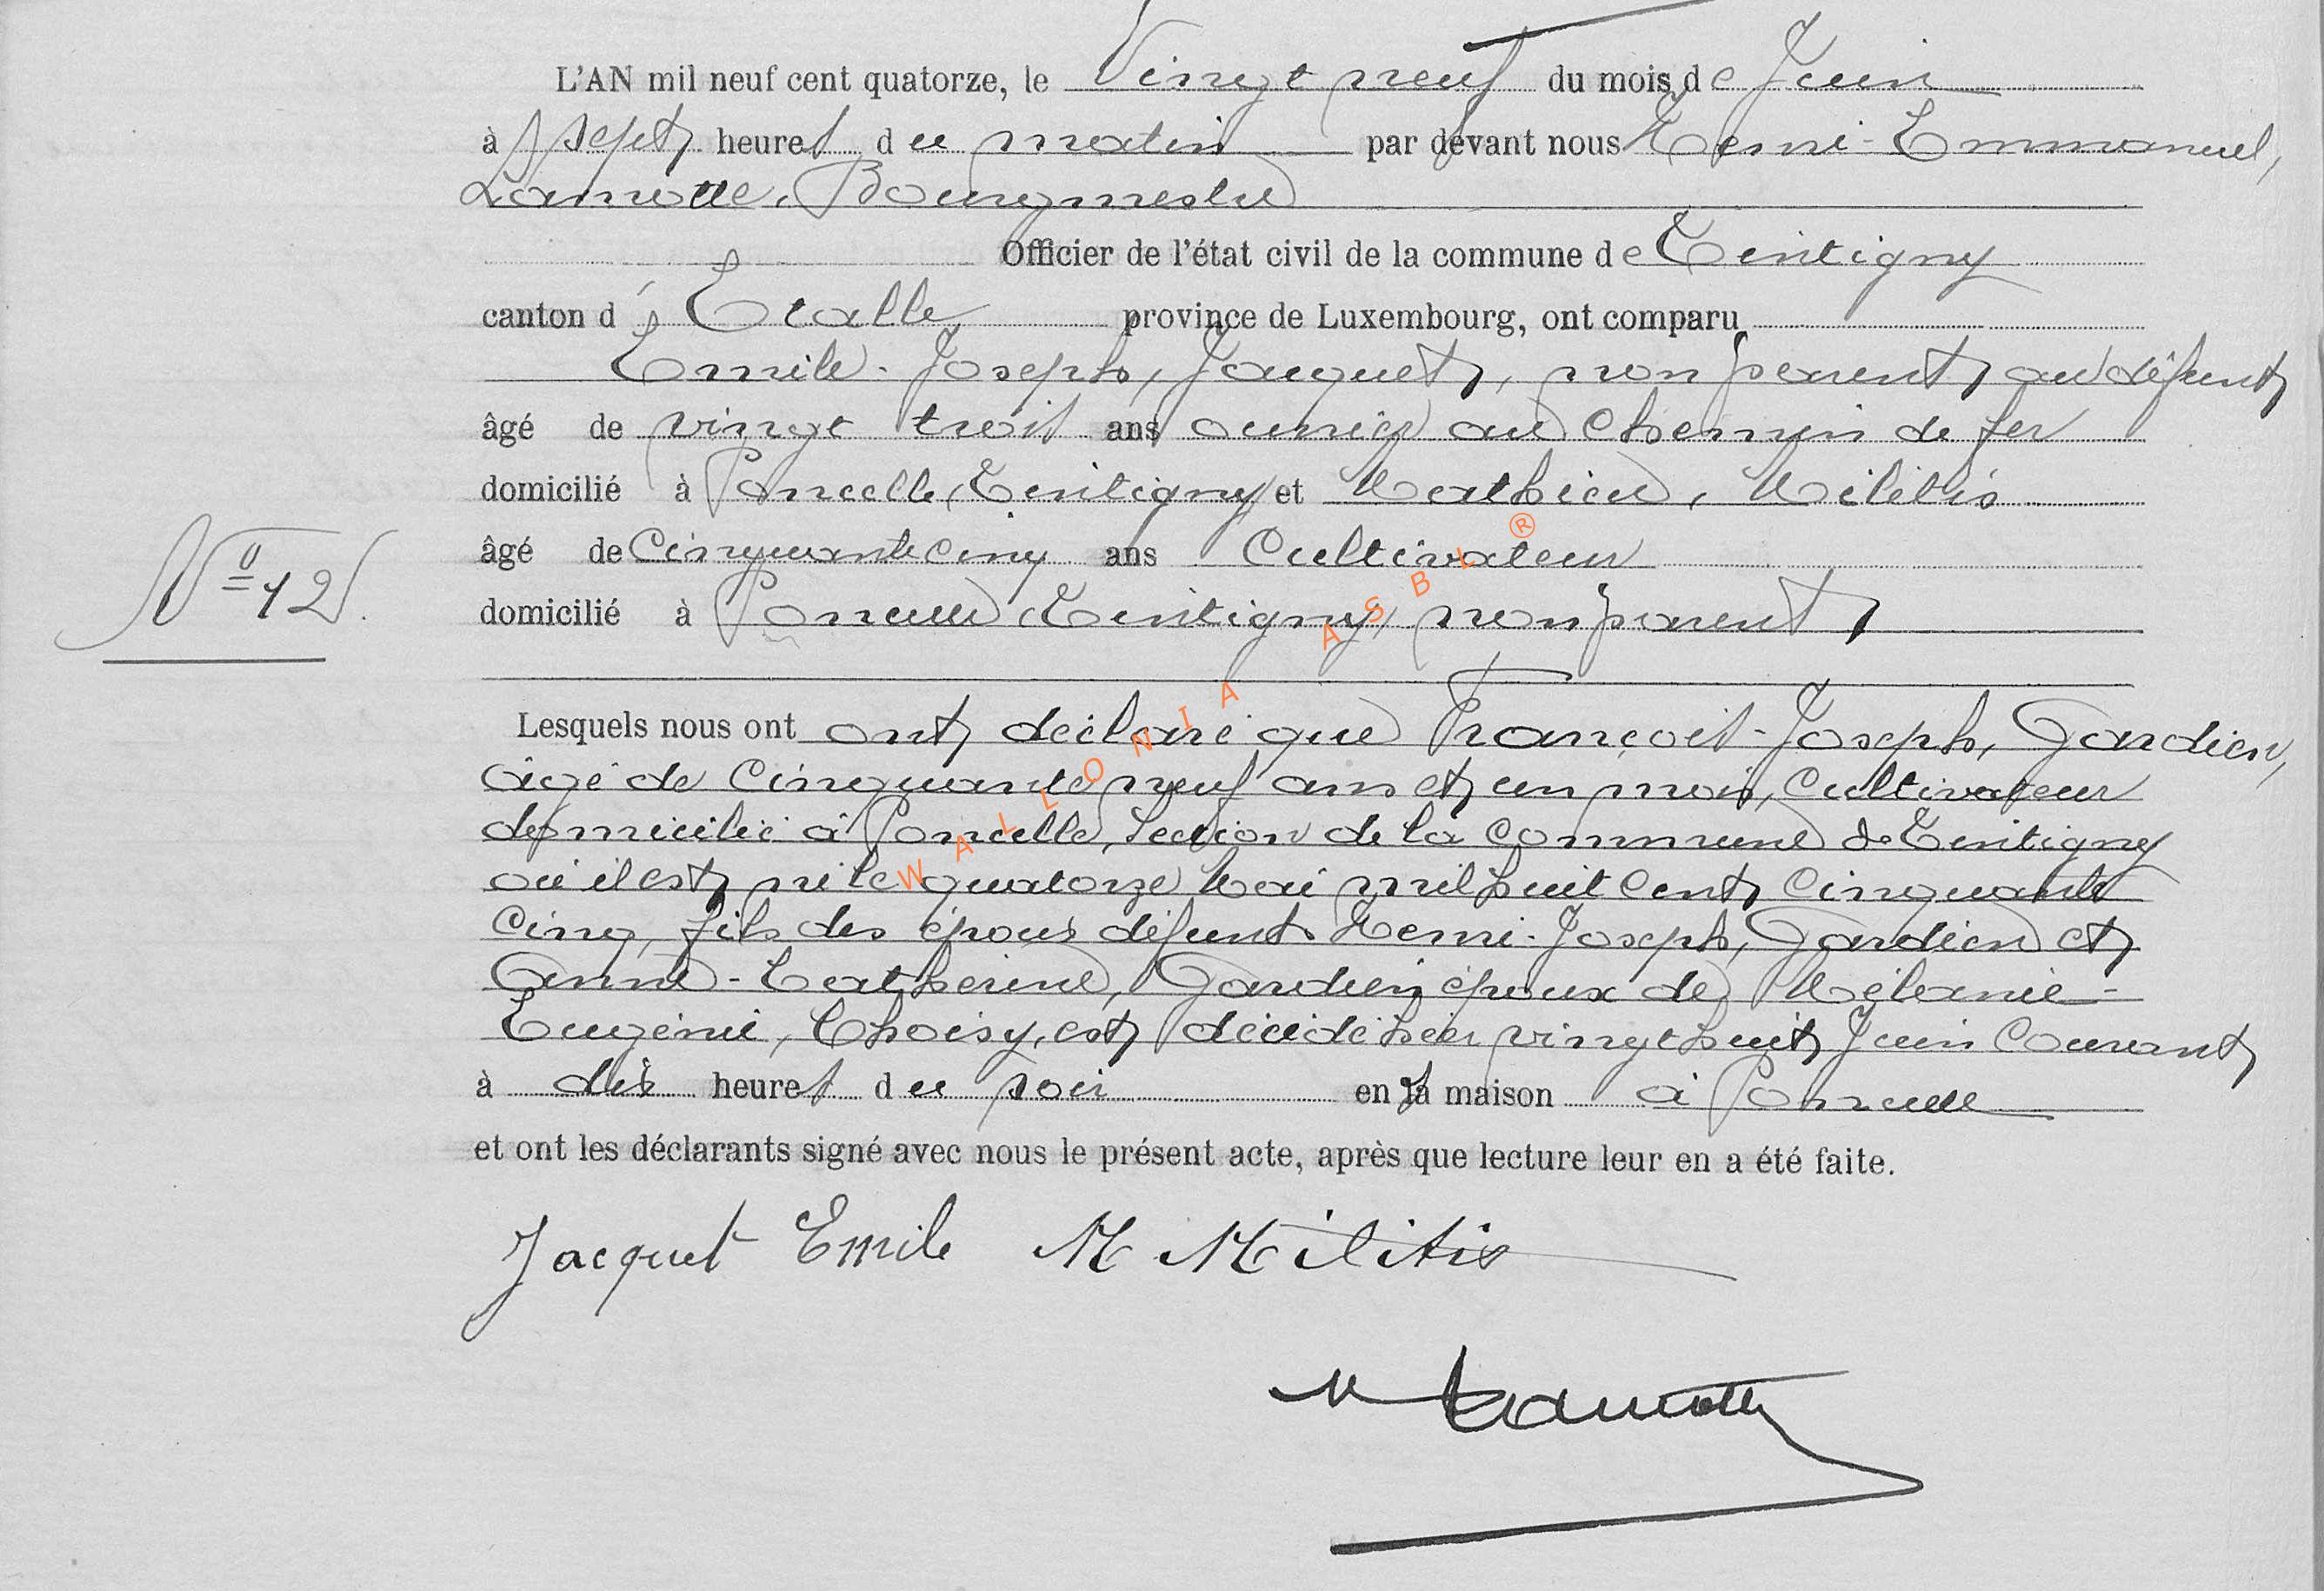 L'AN mil neuf cent quatorze, le Vingt neuf du mois de Juin
à sept heures du matin par devant nous Henri-Emmanuel,
Lamotte, Bourgmestre
Officier de l'état civil de la commune de Tintigny
canton d'Etalle province de Luxembourg, ont comparu
Emile-Joseph, Jacquet, non parent au défunt
âgé de vingt trois ans ouvrier au chemin de fer
domicilié à Poncelle, Tintigny et Mathieu, Militis
âgé de Cinquante cinq ans Cultivateur
N° 12.
domicilié à Poncelle Tintigny, non parent
Lesquels nous ont ont déclaré que François-Joseph, Jardien,
âgé de Cinquante neuf ans et un mois, Cultivateur
domicilié à Poncelle, Section de la Commune de Tintigny
où il est né le quatorze Mai mil huit Cent Cinquante
Cinq, fils des époux défunts Henri-Joseph, Jardien et
Anne-Catherine, Jardien époux de Mélanie-
Eugénie, Choisy, est décédé hier vingt huit Juin Courant
à dix heures du soir en sa maison à Poncelle
et ont les déclarants signé avec nous le présent acte, après que lecture leur en a été faite.
Jacquet Emile M Militis
Lamotte
WALLONIA ASBL ®